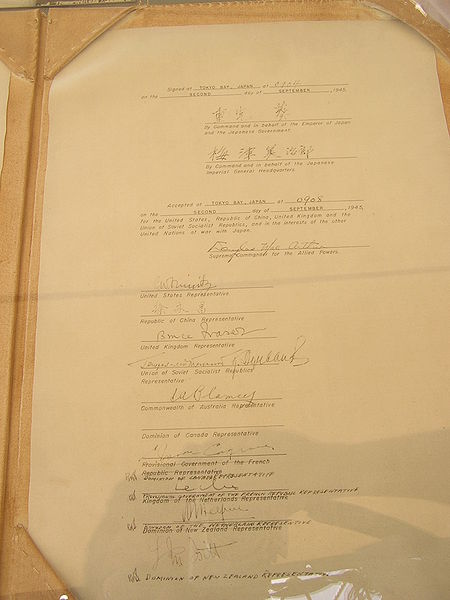 Signed at TOKYO BAY, JAPAN at 0904
on the SECOND day of SEPTEMBER, 1945.
重光葵
By Command and in behalf of the Emperor of Japan
and the Japanese Government.
梅津美治郎
By Command and in behalf of the Japanese
Imperial General Headquarters.
Accepted at TOKYO BAY, JAPAN at 0908
on the SECOND day of SEPTEMBER, 1945,
for the United States, Republic of China, United Kingdom and the
Union of Soviet Socialist Republics, and in the interests of the other
United Nations at war with Japan.
Douglas MacArthur
Supreme Commander for the Allied Powers.
C.W. Nimitz
United States Representative
徐永昌
Republic of China Representative
Bruce Fraser
United Kingdom Representative
Union of Soviet Socialist Republics
Representative
Blamey
Commonwealth of Australia Representative
Dominion of Canada Representative
Moore Cosgrave
Provisional Government of the French
Republic Representative
DOMINION OF CANADA REPRESENTATIVE
Leclerc
PROVISIONAL GOVERNMENT OF THE FRENCH REPUBLIC REPRESENTATIVE
Kingdom of the Netherlands Representative
KINGDOM OF THE NETHERLANDS REPRESENTATIVE
Dominion of New Zealand Representative
Isitt
DOMINION OF NEW ZEALAND REPRESENTATIVE